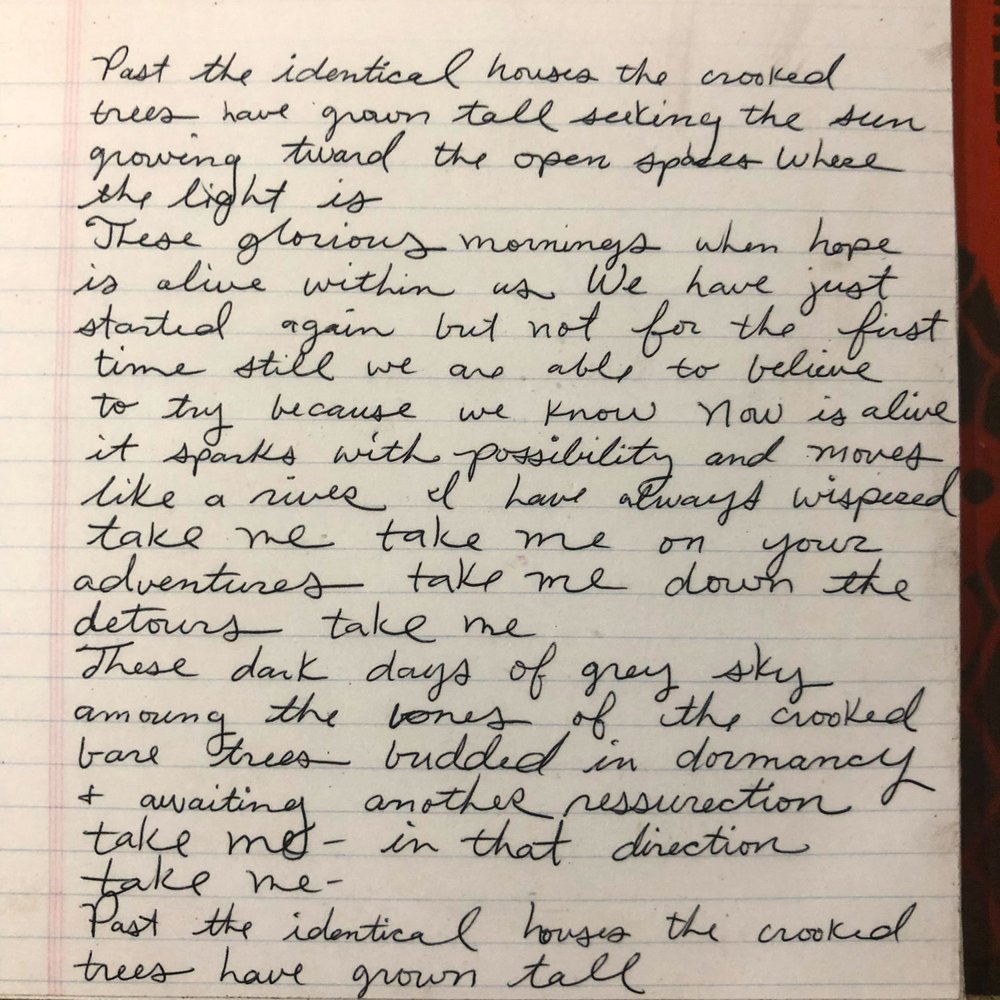 Past the identical houses the crooked
trees have grown tall seeking the sun
growing tward the open spaces where
the light is
These glorious mornings when hope
is alive within us We have just
started again but not for the first
time still we are able to believe
to try because we know Now is alive
it sparks with possibility and moves
like a river I have always wispered
take me take me on your
adventures take me down the
detours take me
These dark days of grey sky
amoung the bones of the crooked
bare trees budded in dormancy
+ awaiting another ressurection
take me - in that direction
take me -
Past the identical houses the crooked
trees have grown tall